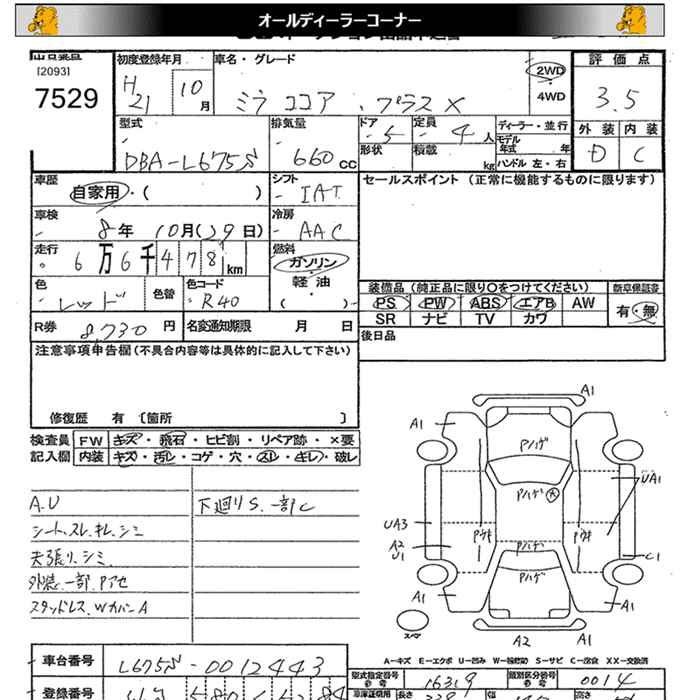 オールディーラーコーナー
[2093]
7529
初度登録年月
H21 10月
車名・グレード
ミラ ココア・プラスX
2WD
・4WD
評価点
3.5
外装 内装
D C
型式
DBA-L675S
排気量
660cc
ドア
5
形状
定員
4人
積載 kg
ディーラー・並行
モデル年式 年
ハンドル 左・右
車歴
自家用・( )
シフト
IAT
車検
8年 10月(29日)
冷房
AAC
走行
6万6千478km
燃料
ガソリン
軽油
( )
色
レッド
色替
色コード
R40
セールスポイント (正常に機能するものに限ります)
装備品(純正品に限り〇をつけてください)
新車保証書
PS PW ABS エアB AW
SR ナビ TV カワ
有・無
R券
8,730円
名変通知期限 月 日
後日品
注意事項申告欄(不具合内容等は具体的に記入して下さい)
修復歴 有 〔箇所 〕
検査員記入欄
FW キズ・飛石・ヒビ割・リペア跡・×要
内装 キズ・汚レ・コゲ・穴・スレ・キレ・破レ
A.U
シート、スレ、キレ、シミ
天張リ、シミ、
外装、一部、Pアセ
スタッドレス、WカバーA
下廻りS、一部C
A1
A1
A1
Pハゲ
Pハゲ
UA1
UA3
A2
U1
Pウキ
Pウキ
Pハゲ
Pハゲ
C1
A1
A1
スペア
A2
A1
A-キズ E-エクボ U-凹み W-補修跡 S-サビ C-腐食 XX-交換済
車台番号
L675S-0012443
型式指定番号 参考
16319
類別区分番号 参考
0014
登録番号
車庫証明用 参考
長さ